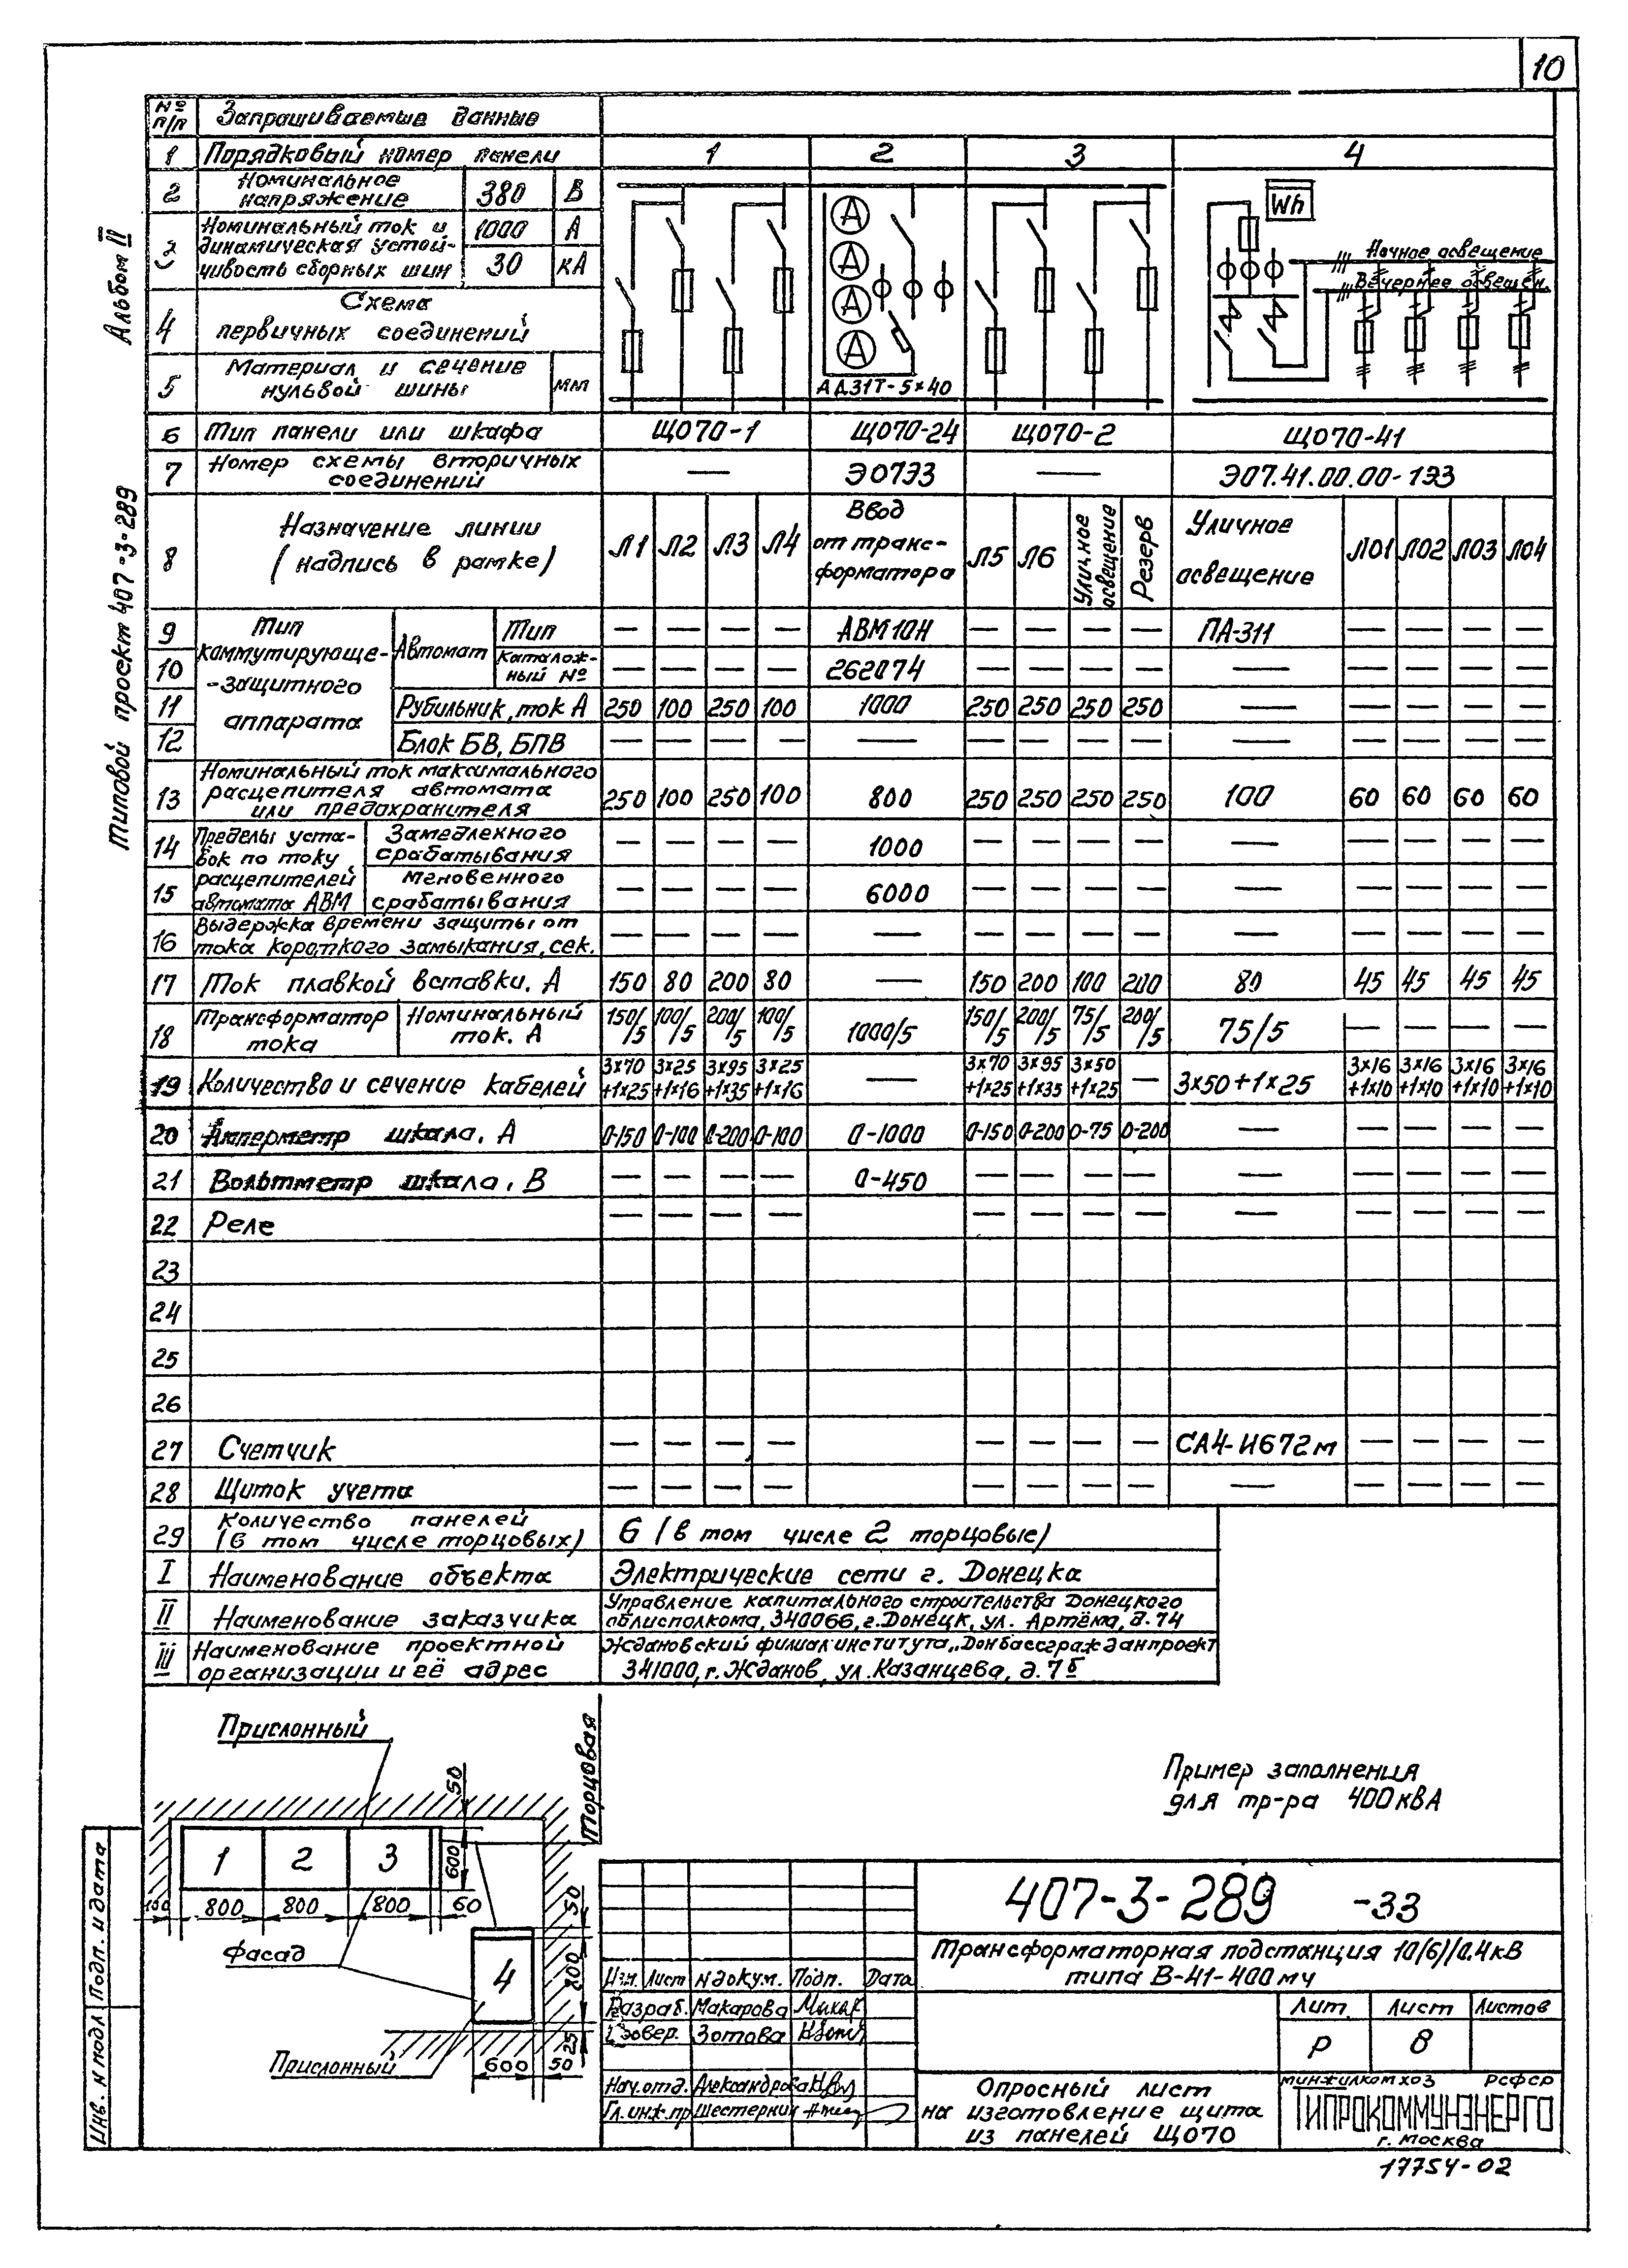 10
Альбом II
Типовой проект 407-3-289
№ п/п Запрашиваемые данные
1 Порядковый номер панели 1 2 3 4
2 Номинальное напряжение 380 В
3 Номинальный ток и динамическая устойчивость сборных шин 1000 А 30 кА
4 Схема первичных соединений
5 Материал и сечение нулевой шины мм
А А А А
АД31Т-5×40
Wh
Ночное освещение
Вечернее освещен.
6 Тип панели или шкафа ЩО70-1 ЩО70-24 ЩО70-2 ЩО70-41
7 Номер схемы вторичных соединений — ЭО7ЭЗ — ЭО7.41.00.00-1ЭЗ
8 Назначение линии (надпись в рамке) Л1 Л2 Л3 Л4 Ввод от трансформатора Л5 Л6 Уличное освещение Резерв Уличное освещение ЛО1 ЛО2 ЛО3 ЛО4
Тип коммутирующе-защитного аппарата
9 Автомат Тип — — — — АВМ10Н — — — — ПА-311 — — — —
10 Каталожный № — — — — 262074 — — — — — — — — —
11 Рубильник, ток А 250 100 250 100 1000 250 250 250 250 — — — — —
12 Блок БВ, БПВ — — — — — — — — — — — — — —
13 Номинальный ток максимального расцепителя автомата или предохранителя 250 100 250 100 800 250 250 250 250 100 60 60 60 60
Пределы уставок по току расцепителей автомата АВМ
14 Замедленного срабатывания — — — — 1000 — — — — — — — — —
15 Мгновенного срабатывания — — — — 6000 — — — — — — — — —
16 Выдержка времени защиты от тока короткого замыкания, сек. — — — — — — — — — — — — — —
17 Ток плавкой вставки, А 150 80 200 80 — 150 200 100 200 80 45 45 45 45
18 Трансформатор тока Номинальный ток. А 150/5 100/5 200/5 100/5 1000/5 150/5 200/5 75/5 200/5 75/5 — — — —
19 Количество и сечение кабелей 3×70+1×25 3×25+1×16 3×95+1×35 3×25+1×16 — 3×70+1×25 3×95+1×35 3×50+1×25 — 3×50+1×25 3×16+1×10 3×16+1×10 3×16+1×10 3×16+1×10
20 Амперметр шкала, А 0-150 0-100 0-200 0-100 0-1000 0-150 0-200 0-75 0-200 — — — — —
21 Вольтметр шкала, В — — — — 0-450 — — — — — — — — —
22 Реле — — — — — — — — — — — — —
23
24
25
26
27 Счетчик — — — — — — — — СА4-И672м — — — —
28 Щиток учета — — — — — — — — — — — — —
29 Количество панелей (в том числе торцовых) 6 (в том числе 2 торцовые)
I Наименование объекта Электрические сети г. Донецка
II Наименование заказчика Управление капитального строительства Донецкого облисполкома, 340066, г. Донецк, ул. Артёма, д. 74
III Наименование проектной организации и её адрес Ждановский филиал института „Донбассгражданпроект 341000, г. Жданов, ул. Казанцева, д. 7б
Прислонный
Торцовая
50
1 2 3
600
100 800 800 800 60
50
Фасад
4
800
Прислонный
600 50 25
Пример заполнения
для тр-ра 400 кВА
407-3-289 -ЭЗ
Трансформаторная подстанция 10(6)/0.4кВ
типа В-41-400 му
Изм. Лист № докум. Подп. Дата
Разраб. Макарова
Провер. Зотова
Нач.отд. Александрова
Гл.инж.пр Шестернин
Лит. Лист Листов
Р 8
Опросный лист
на изготовление щита
из панелей ЩО70
Минжилкомхоз РСФСР
ГИПРОКОММУНЭНЕРГО
г. Москва
17754-02
Инв. № подл Подп. и дата